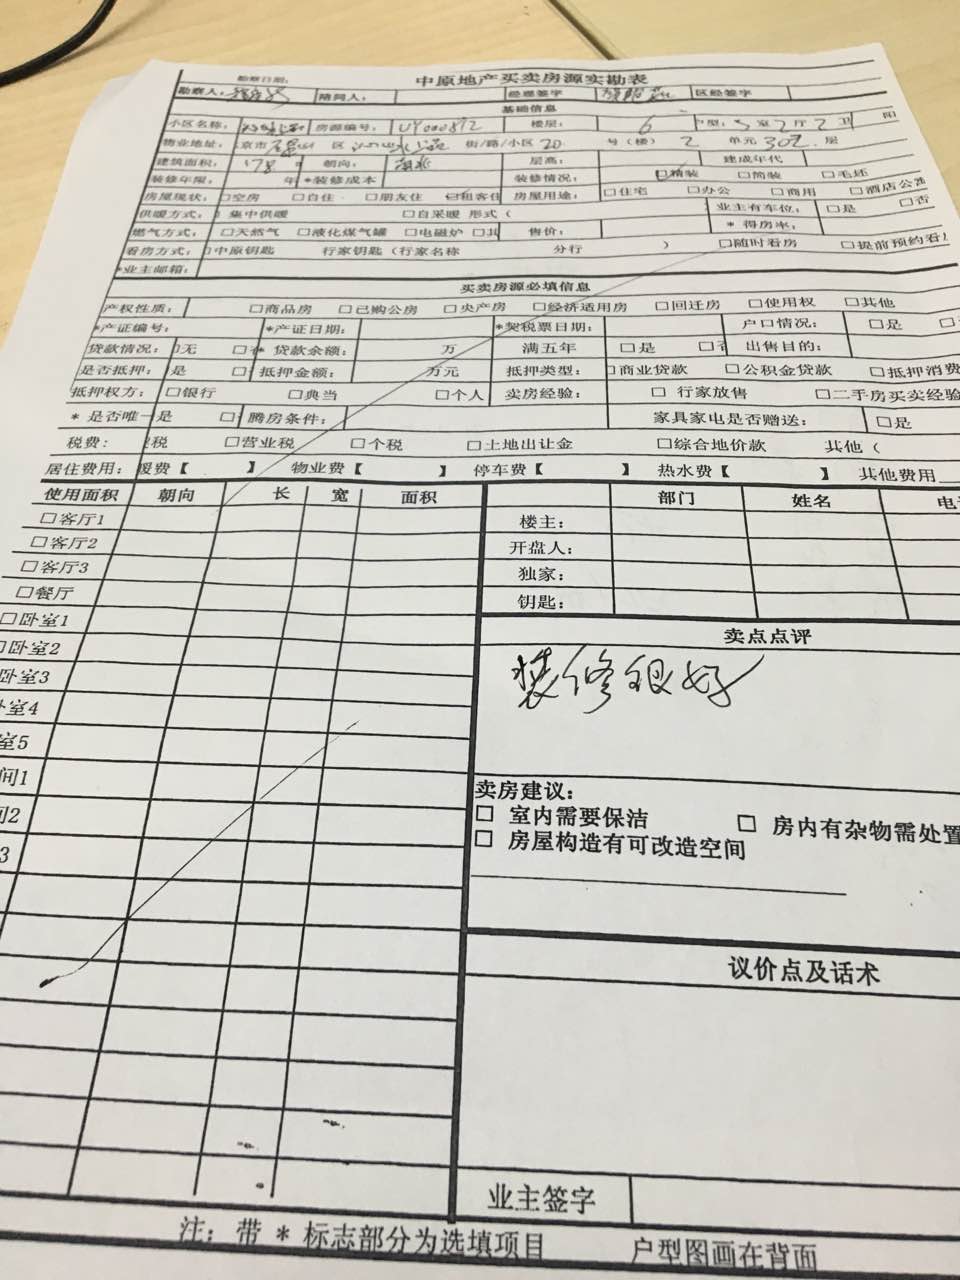 勘察日期：
中原地产买卖房源实勘表
勘察人： 陪同人： 经理签字 区经签字
基础信息
小区名称： 房源编号： UY000872 楼层： 6 户型： 室2厅2卫 阳
物业地址： 京市石景山 区 街/路/小区20 号（楼） 2 单元302 层
建筑面积： 178 朝向： 南北 层高： 建成年代
装修年限： 年 *装修成本 装修情况： ☑精装 □简装 □毛坯
房屋现状： □空房 □自住 □朋友住 ☑租客住 房屋用途： □住宅 □办公 □商用 □酒店公
供暖方式： 集中供暖 □自采暖 形式（ 业主有车位： □是 □否
燃气方式： □天然气 □液化煤气罐 □电磁炉 □其 售价： *得房率：
看房方式： □中原钥匙 行家钥匙（行家名称 分行 ） □随时看房 □提前预约看
*业主邮箱：
买卖房源必填信息
产权性质： □商品房 □已购公房 □央产房 □经济适用房 □回迁房 □使用权 □其他
*产证编号： *产证日期： *契税票日期： 户口情况： □是
贷款情况： 无 * 贷款余额： 万 满五年 □是 出售目的：
是否抵押： 是 抵押金额： 万元 抵押类型： □商业贷款 □公积金贷款 □抵押消费
抵押权方： □银行 □典当 □个人 卖房经验： □ 行家放售 □二手房买卖经验
* 是否唯一 是 腾房条件： 家具家电是否赠送： □是
税费： 税 □营业税 □个税 □土地出让金 □综合地价款 其他（
居住费用： 暖费【 】 物业费【 】 停车费【 】 热水费【 】 其他费用
使用面积 朝向 长 宽 面积 部门 姓名 电
□客厅1 楼主：
□客厅2 开盘人：
□客厅3 独家：
□餐厅 钥匙：
□卧室1 卖点点评
□卧室2
卧室3 装修很好
室4
室5
间1 卖房建议：
2 □ 室内需要保洁 □ 房内有杂物需处置
3 □ 房屋构造有可改造空间
议价点及话术
业主签字
注：带 * 标志部分为选填项目 户型图画在背面